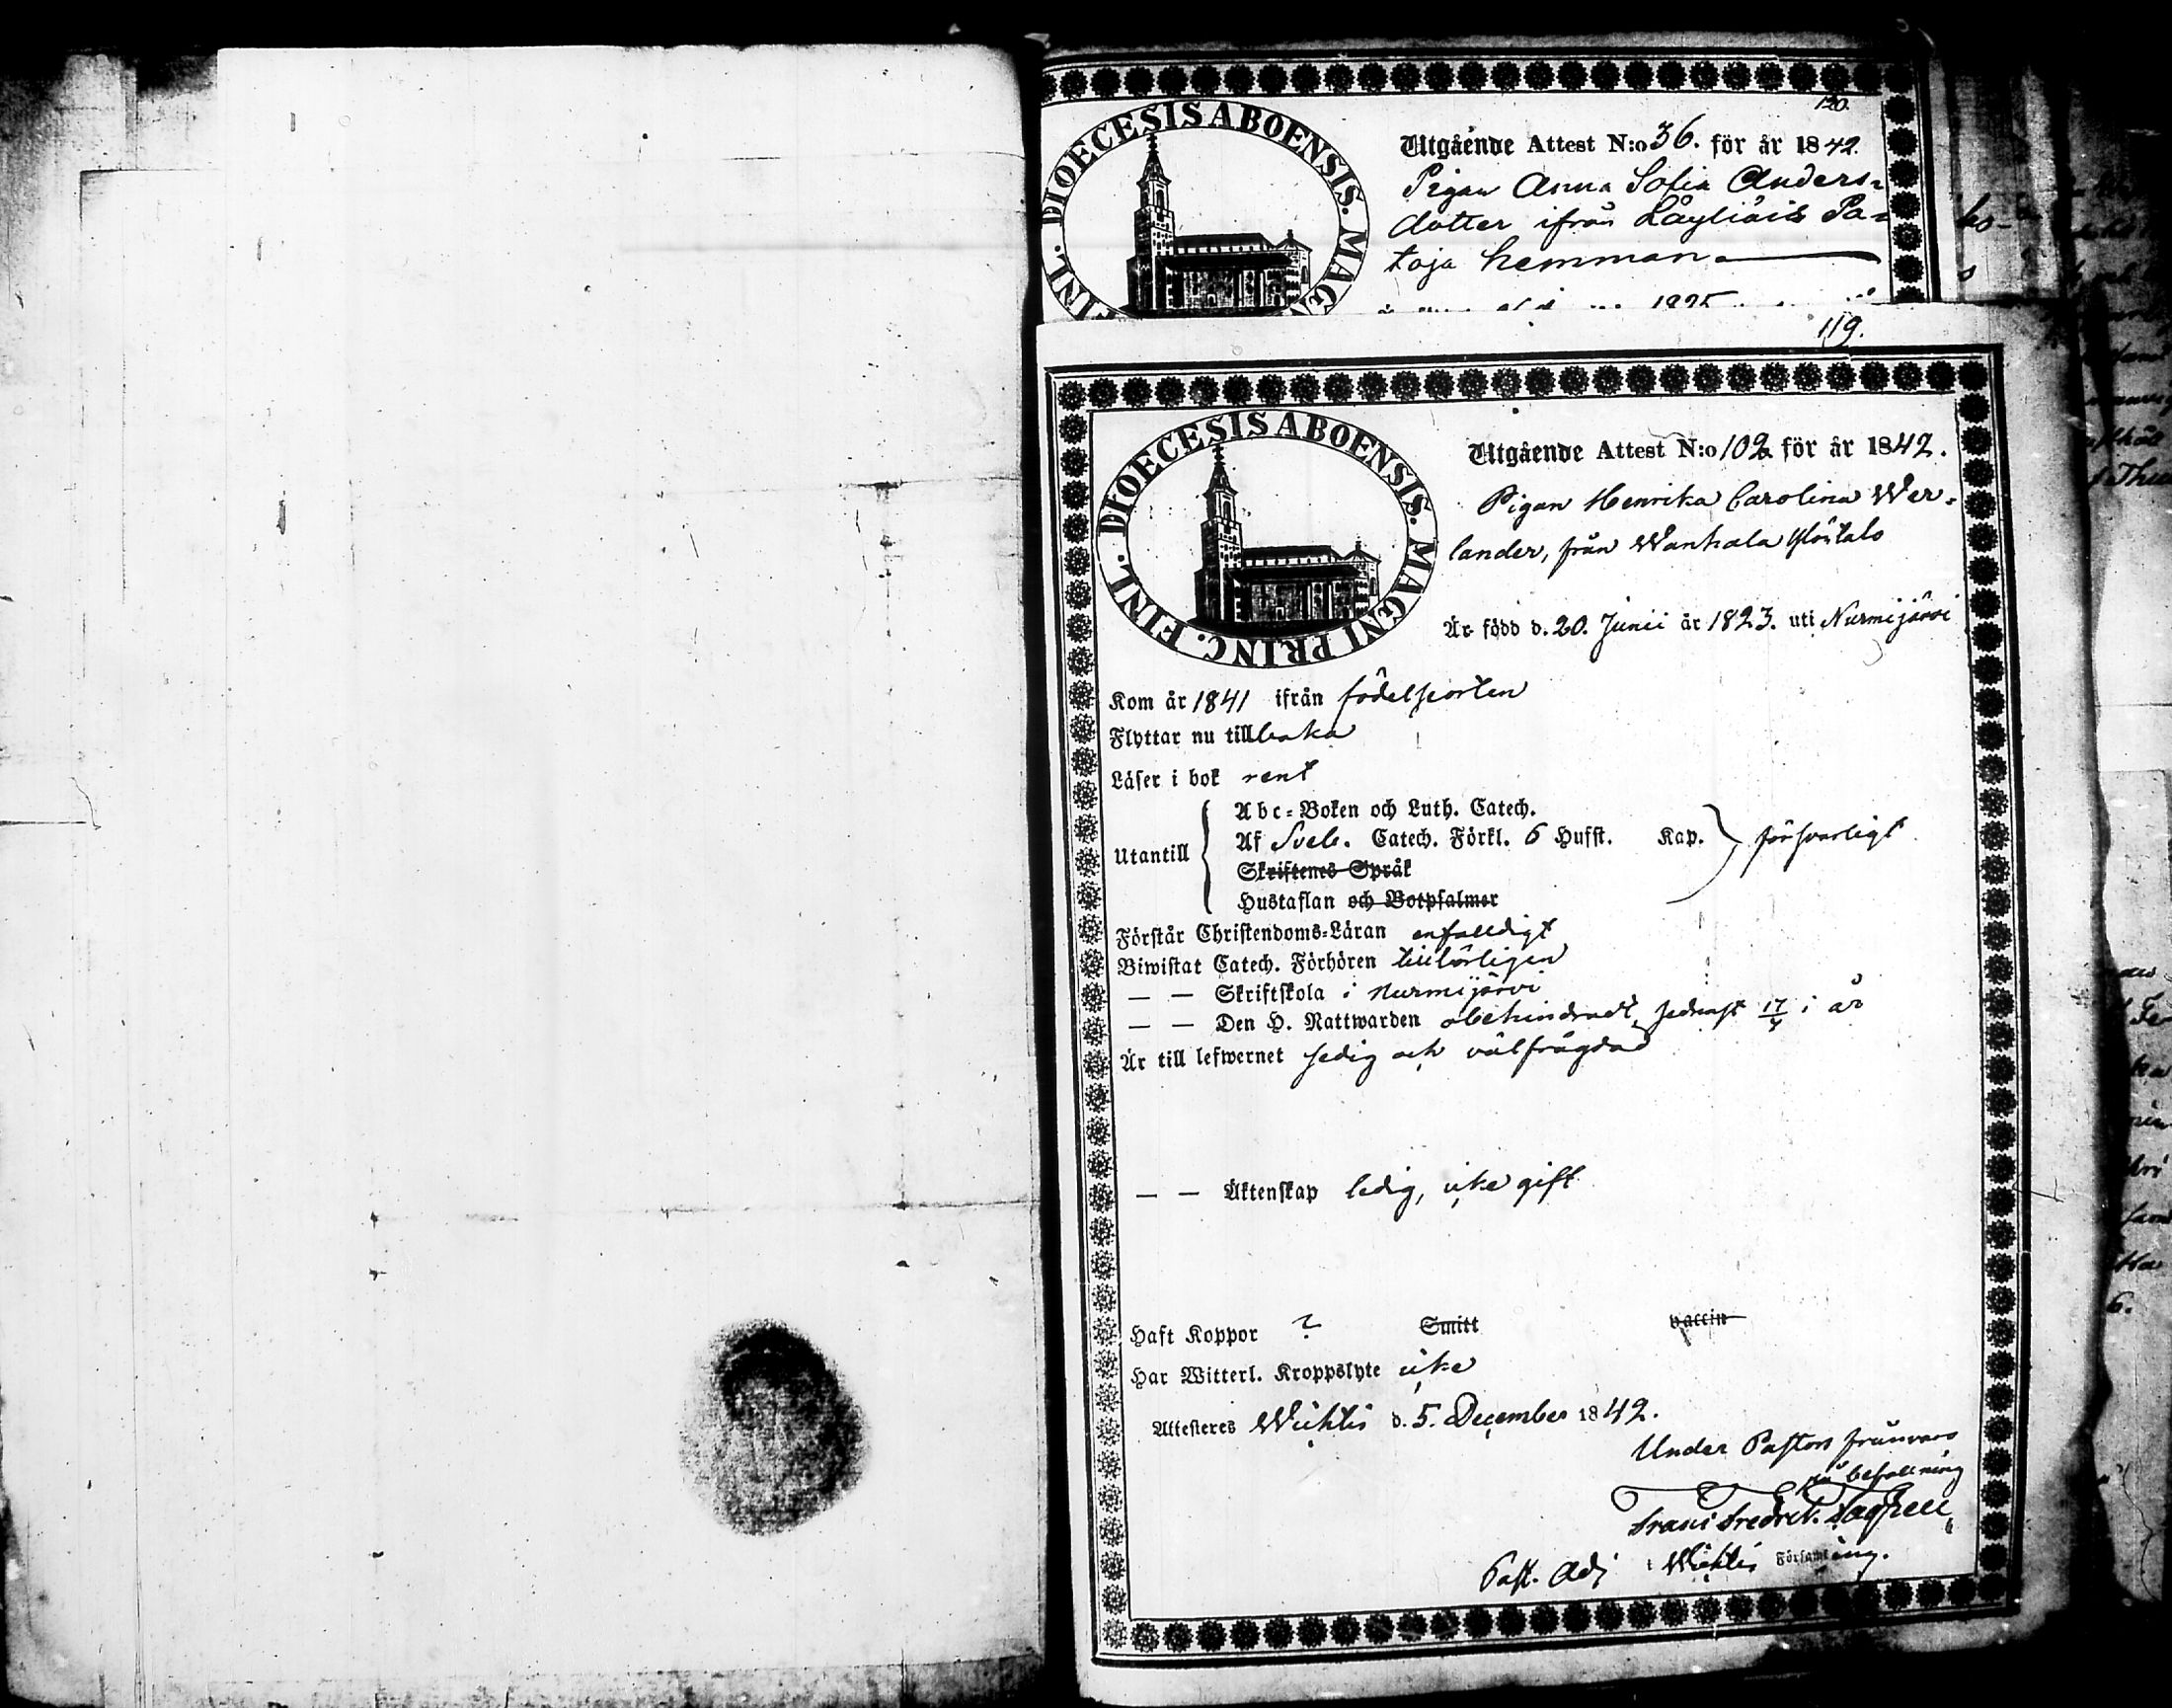 120.
DIOECESIS ABOENSIS. MAGN
FINL.
Utgående Attest N:o 36. för år 1842.
Pigan Anna Sofia Anders=
dotter ifrån Läyliäis Pa=
toja hemman.
119.
DIOECESIS ABOENSIS. MAGNI PRINC. FINL.
Utgående Attest N:o 102 för år 1842.
Pigan Henrika Carolina Wer=
lander, från Wanhala
Är född d. 20. Junii år 1823. uti Nurmijärvi
Kom år 1841 ifrån födelseorten
Flyttar nu tillbaka
Läser i bok rent
Utantill
Abc=Boken och Luth. Catech.
Af Sveb. Catech. Förkl. 6 Hufst. Kap. försvarligt
Skriftenes Språk
Hustaflan och Botpsalmer
Förstår Christendoms=Läran enfaldigt
Biwistat Catech. Förhören tillbörligen
— — Skriftskola i Nurmijärvi
— — Den H. Nattwarden obehindradt, sednast 17/4 i år
Är till lefwernet sedig och välfrägdad
— — Äktenskap ledig, icke gift
Haft Koppor ? Smitt vaccin
Har Witterl. Kroppslyte icke
Attesteres Wichtis d. 5. December 1842.
Under Pastors frånvaro
på befallning
Frans Fredrik
Past. Adj i Wichtis Församling.